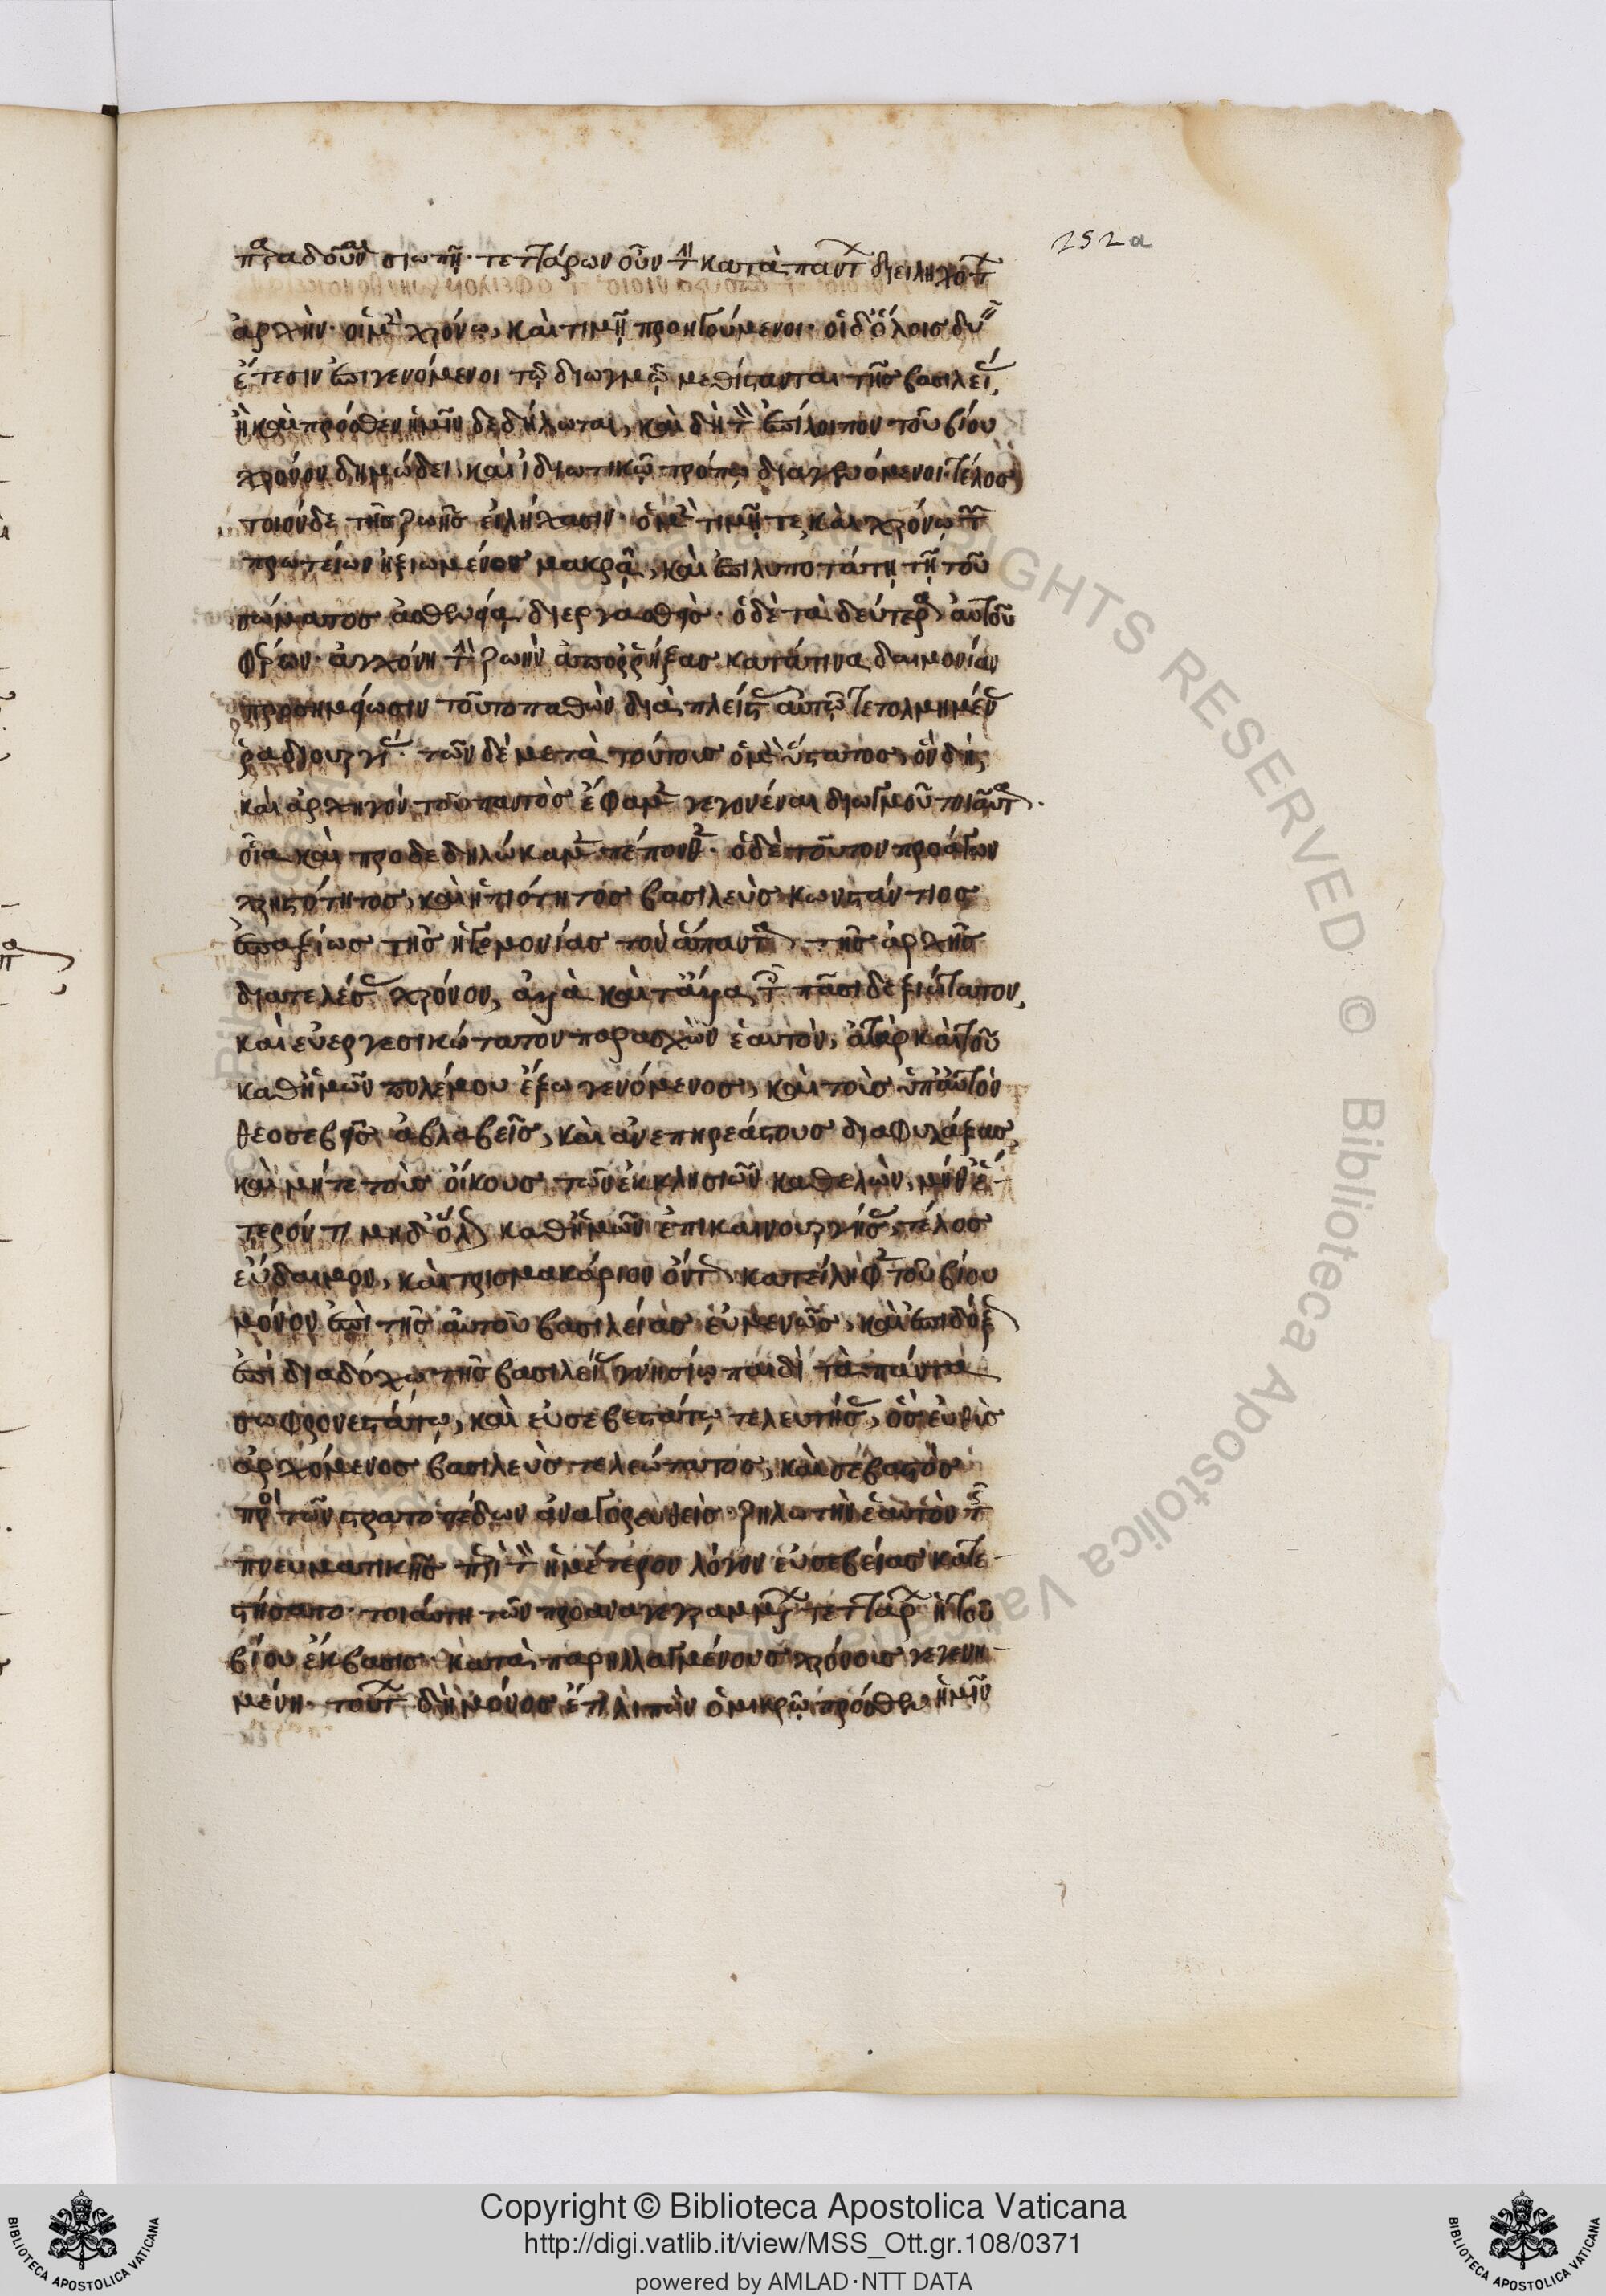 252a
παραδοῦναι σιωπῇ· τεττάρων οὖν τὴν κατὰ πάντων διειληχότων
ἀρχὴν· οἱ μὲν χρόνω, καὶ τιμῇ προηγούμενοι· οἱ δ' ὅλοις δυσὶν
ἔτεσιν ἐπιγενόμενοι τῶ διωγμῶ μεθίστανται τῆς βασιλείας,
ἧ καὶ πρόσθεν ἡμῖν δεδήλωται, καὶ δὴ τὸν ἐπίλοιπον τοῦ βίου
χρόνον δημώδει, καὶ ἰδιωτικῶ τρόπω διαγενόμενοι· τέλος
τοιόνδε τῆς ζωῆς εἰλήχασιν· ὁ μὲν τιμῇ τε, καὶ χρόνω τῶν
πρωτείων ἠξιωμένος μακρᾶ, καὶ ἐπιλυποτάτη τῇ τοῦ
σώματος ἀσθενεία διεργασθεὶς· ὁ δὲ τὰ δεύτερα αὐτοῦ
φέρων· ἀγχόνη τὴν ζωὴν ἀπορρήξας κατά τινα δαιμονίαν
προσημείωσιν τοῦτο παθὼν διὰ πλείστας αὐτῶ τετολμημένας
ῥαδιουργίας· τῶν δὲ μετὰ τούτους ὁ μὲν ὕστατος, ὃν δὴ
καὶ ἀρχηγὸν τοῦ παντὸς ἔφαμεν γεγονέναι διωγμοῦ τοιαῦτα
οἷα καὶ προδεδηλώκαμεν πέπονθεν· ὁ δὲ τοῦτον προάγων
χρηστότητος, καὶ ἠπιότητος βασιλεὺς κωνστάντιος
ἐπαξίως τῆς ἡγεμονίας τὸν ἅπαντα τῆς ἀρχῆς
διατελέσας χρόνον, ἀλλὰ καὶ τἄλλα τοῖς πᾶσι δεξιώτατον,
καὶ εὐεργεσικώτατον παρασχὼν ἑαυτὸν, ἀτὰρ καὶ τοῦ
καθ' ἡμῶν πολέμου ἔξω γενόμενος, καὶ τοὺς ὑπ' αὐτὸν
θεοσεβεῖς ἀβλαβεῖς, καὶ ἀνεπηρεάστους διαφυλάξας,
καὶ μήτε τοὺς οἴκους τῶν ἐκκλησιῶν καθελὼν, μήθ' ἕ-
τερόν τι μηδ' ὅλως καθ' ἡμῶν ἐπικαινουργήσας, τέλος
εὔδαιμον, καὶ τρισμακάριον ὄντως κατείληφεν τοῦ βίου
μόνον ἐπὶ τῆς αὐτοῦ βασιλείας εὐμενῶς, καὶ ἐπιδόξως
ἐπὶ διαδόχω τῆς βασιλείας γνησίω παιδὶ τὰ πάντα
σωφρονεστάτω, καὶ εὐσεβεστάτω τελευτήσας, ὃς εὐθὺς
ἀρχόμενος βασιλεὺς τελεώτατος, καὶ σεβαστὸς
πρὸς τῶν στρατοπέδων ἀναγορευθεὶς· ζηλωτὴν ἑαυτὸν τῆς
πνευματικῆς περὶ τὸν ἡμέτερον λόγον εὐσεβείας κατε-
στήσατο· τοιαύτη τῶν προαναγεγραμμένων τεττάρων ἡ τοῦ
βίου ἔκβασις· κατὰ παρηλλαγμένους χρόνους γεγενη-
μένη· τούτων δὴ μόνος ἔτι λιπὼν ὁ μικρῶ πρόσθεν ἡμῖν
Copyright © Biblioteca Apostolica Vaticana
http://digi.vatlib.it/view/MSS_Ott.gr.108/0371
powered by AMLAD·NTT DATA